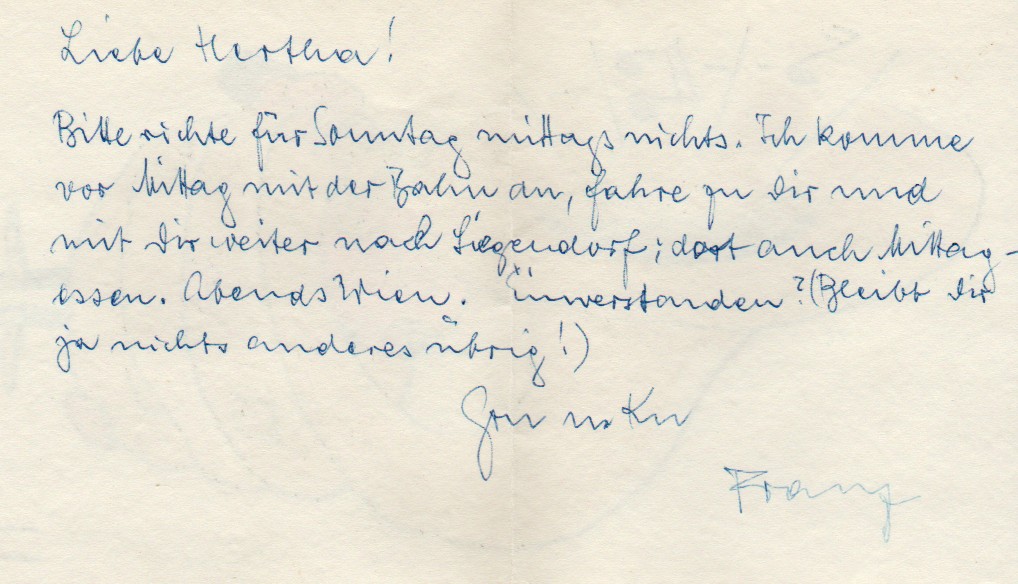 Liebe Hertha!
Bitte richte für Sonntag mittags nichts. Ich komme
vor Mittag mit der Bahn an, fahre zu Dir und
mit Dir weiter nach Siegendorf; dort auch Mittag-
essen. Abends Wien. Einverstanden? (Bleibt Dir
ja nichts anderes übrig!)
Franz